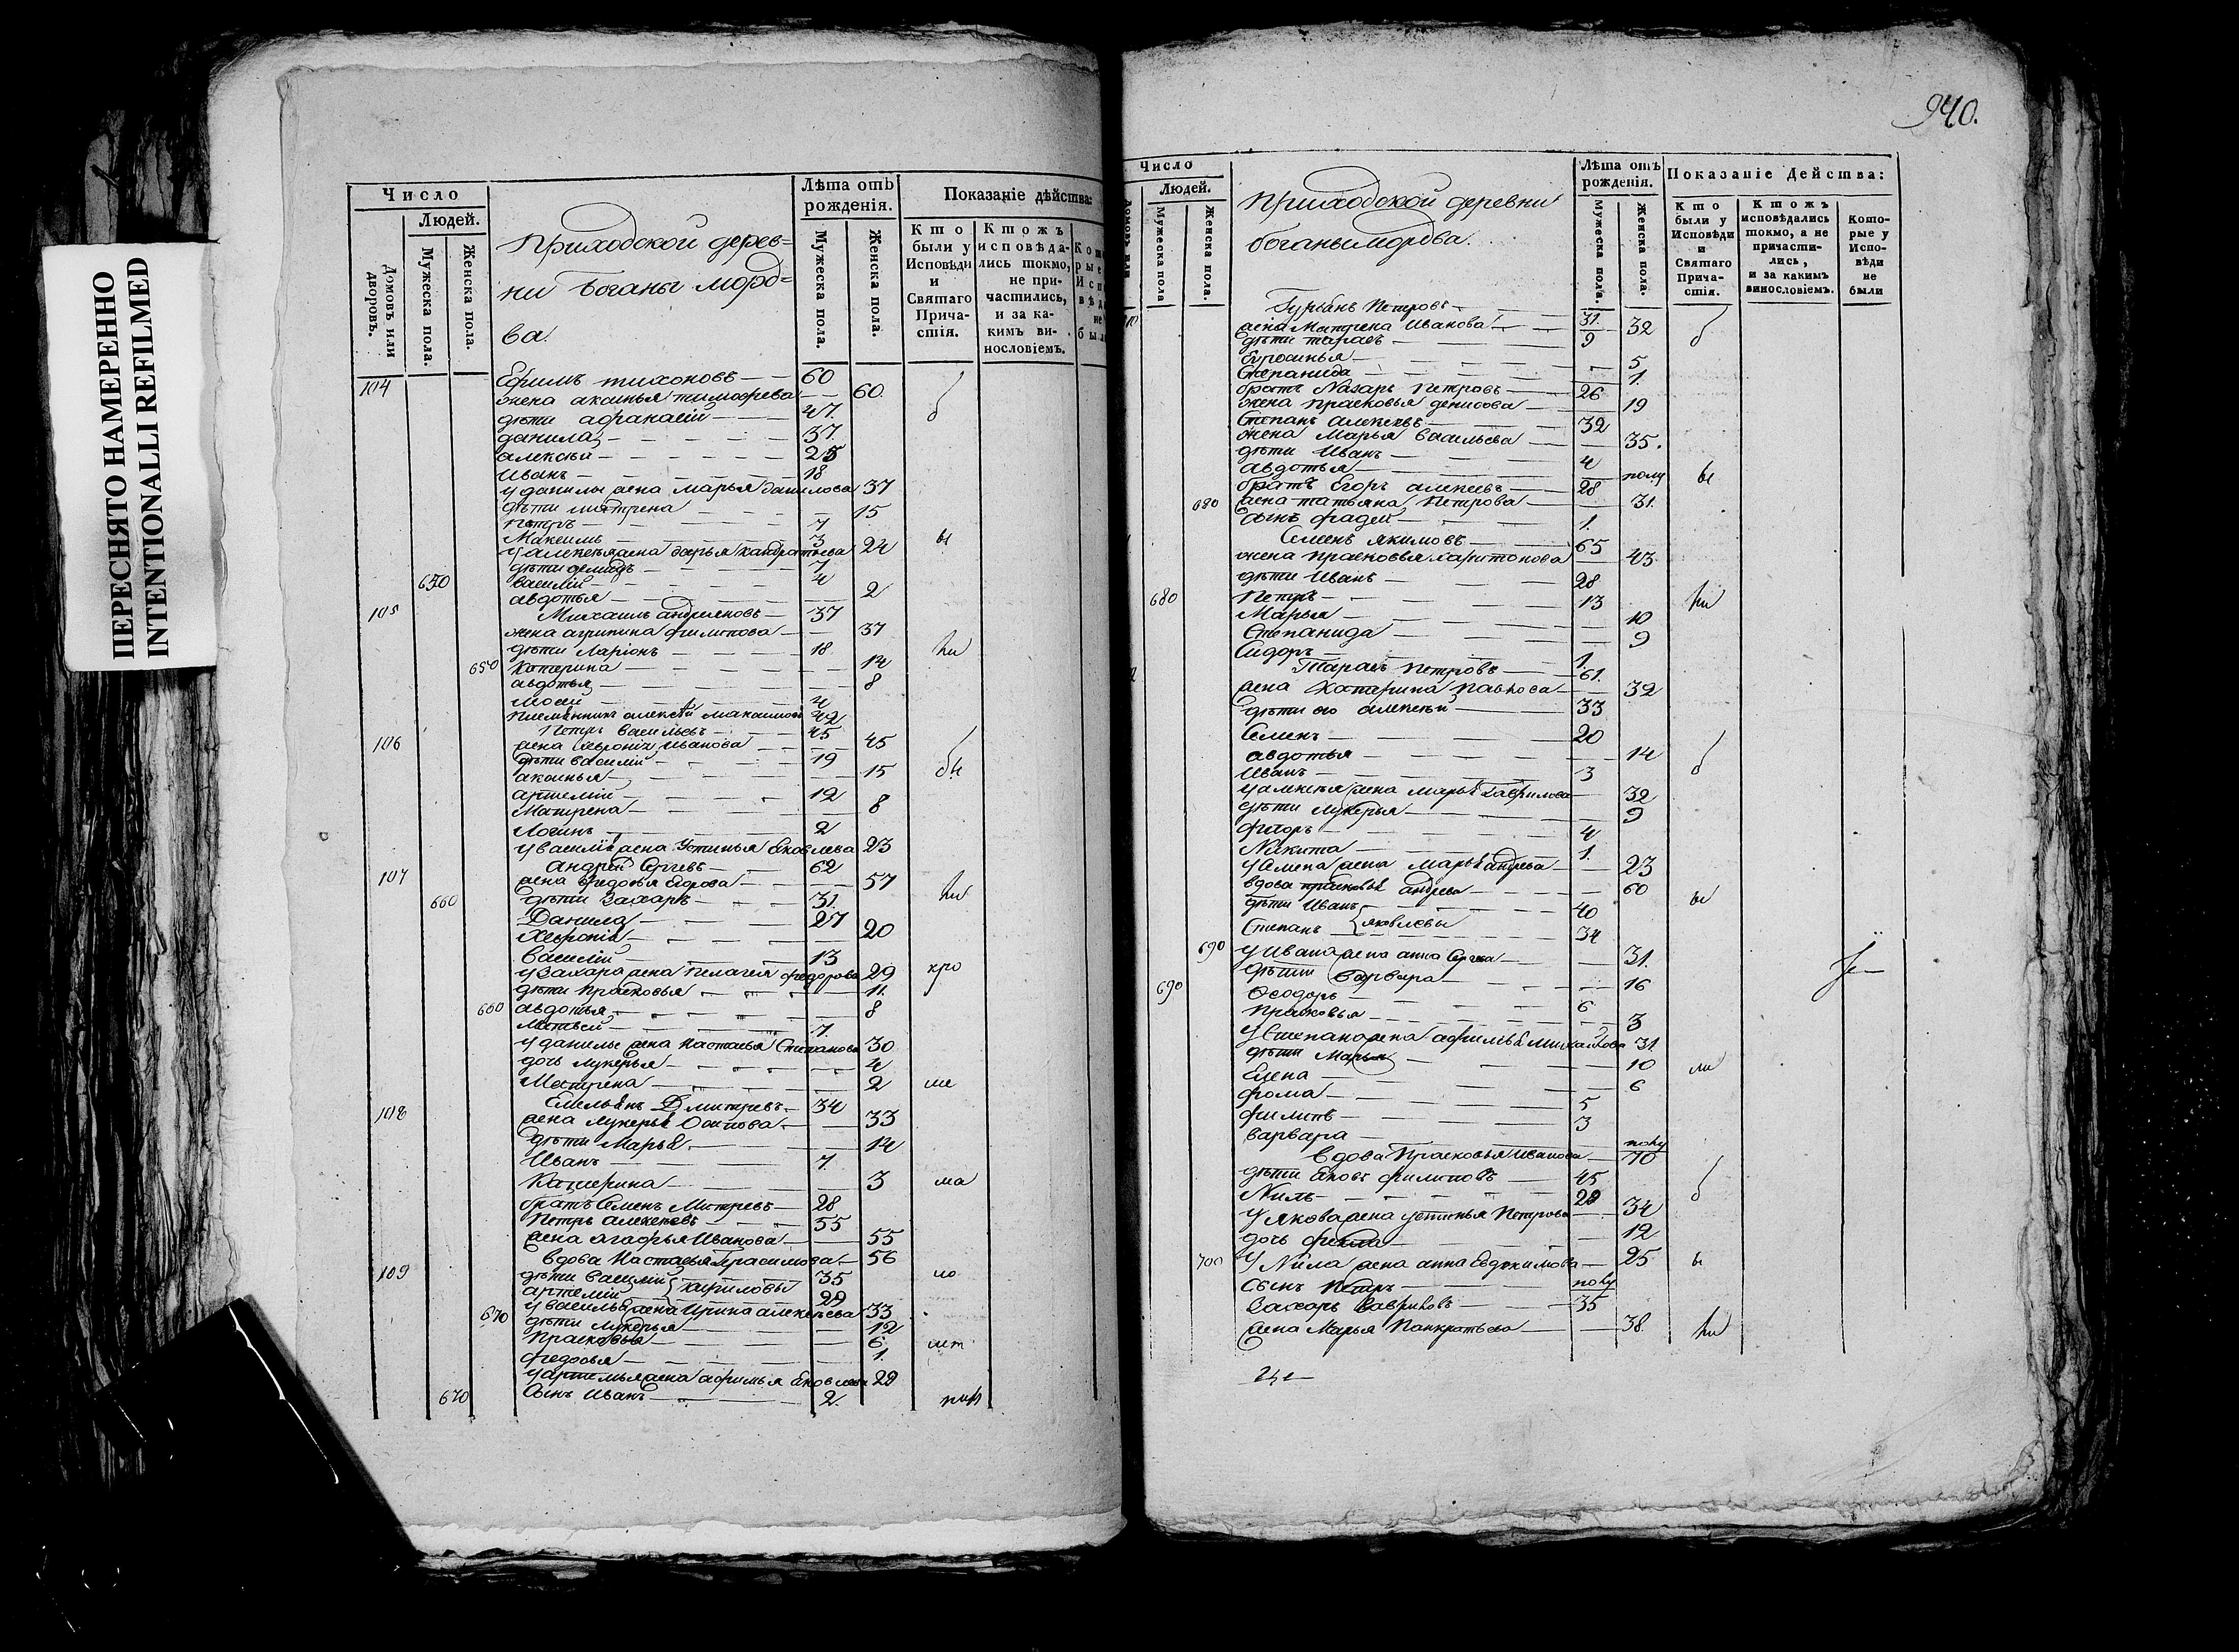 ПЕРЕСНЯТО НАМЕРЕННО
INTENTIONALLI REFILMED
Число
Людей.
Домовъ или дворовъ.
Мужеска пола.
Женска пола.
Приходской дерев=
ни Боганы морд=
ва.
Лѣта отъ рожденія.
Мужеска пола.
Женска пола.
Показаніе дѣйства:
Кто были у Исповѣди и Святаго Причастія.
Ктожъ исповѣдались токмо, не причастились, и за какимъ винословіемъ.
104 Ефимъ тихоновъ 60
жена аксинья тимофѣева 60 б
дѣти афанасій 47
данила 37
алексѣй 25
Иванъ 18
у данилы жена марья данилова 37
дѣти матрена 15
Петръ 7
Максимъ 3 ы
у алексѣя жена дарья кандратьева 24
дѣти демидъ 7
650 василій 4
авдотья 2
105 Михаилъ андреяновъ 37
жена агрипина филипова 37
дѣти Ларіонъ 18
650 Катерина 14
авдотья 8
Мосей 4
племянникъ алексѣй максимовъ 42
106 Петръ васильевъ 45
жена Иванова 45
дѣти василій 19
аксинья 15
артемій 12
Матрена 8
Логинъ 2
у василія жена Устинья Яковлева 23
107 андрей Сергѣевъ 62
жена федосья Егорова 57
660 дѣти Захаръ 31
Данила 27
20
василій 13
у Захара жена пелагея федорова 29
дѣти Прасковья 11
660 авдотья 8
Матвей 7
у данилы жена настасья Степанова 30
дочь лукерья 4
Матрена 2
108 Емельянъ Дмитревъ 34
жена лукерья Осипова 33
дѣти Марья 14
Иванъ 7
Катерина 3 ма
братъ Семенъ Митревъ 28
Петръ алексѣевъ 55
жена агафья Иванова 55
109 вдова Настасья Герасимова 56
дѣти василій 35
артемій 29
670 у василья жена Ирина алексѣева 33
дѣти лукерья 12
Прасковья 6
федосья 1
у артемья жена афимья Яковлева 29
670 сынъ Иванъ 2
940.
Число
Людей.
Мужеска пола
Женска пола.
приходской деревни
боганы мордва.
Лѣта отъ рожденія.
Мужеска пола.
Женска пола.
Показаніе Действа:
Кто были у Исповѣди и Святаго Причастія.
Ктожъ исповѣдались токмо, а не причастились, и за какимъ винословіемъ.
Которые у Исповѣди не были
Гурьянъ Петровъ 31
жена Матрена Иванова 32 б
дѣти тарасъ 9
5
Степанида 1
братъ Назаръ Петровъ 26
жена прасковья денисова 19
Степанъ алексѣевъ 32
жена Марья васильева 35
дѣти Иванъ 4
авдотья полу ы
братъ Егоръ алексѣевъ 28
680 жена татьяна Петрова 31
сынъ фадей 1
Семенъ якимовъ 65
жена прасковья харитонова 43
дѣти Иванъ 28
680 Петръ 13
Марья 10
Степанида 9
Сидоръ 1
Тарасъ Петровъ 61
жена Катерина Павлова 32
дѣти его алексѣй 33
Семенъ 20
авдотья 14
Иванъ 3 б
у алексѣя жена марья Гаврилова 32
дѣти лукерья 9
4
Никита 1
у Семена жена марья андреева 23
вдова прасковья андреева 60
дѣти Иванъ 40 ы
Степанъ яковлевы 34
690 у Ивана жена анна Сергеева 31
дѣти варвара 16
690 Феодоръ 6
прасковья 3
у Степана жена афимья михайлова 31
дѣти Марья 10
Елена 6
фома 5
филипъ 3
варвара полу
вдова Прасковья Иванова 70
дѣти Яковъ филиповъ 45
Нилъ 29 б
у якова жена устинья Петрова 34
дочь фекла 12
700 у Нила жена анна Евдокимова 25
сынъ Петръ полу
Захаръ Гавриловъ 35
жена Марья Панкратьева 38